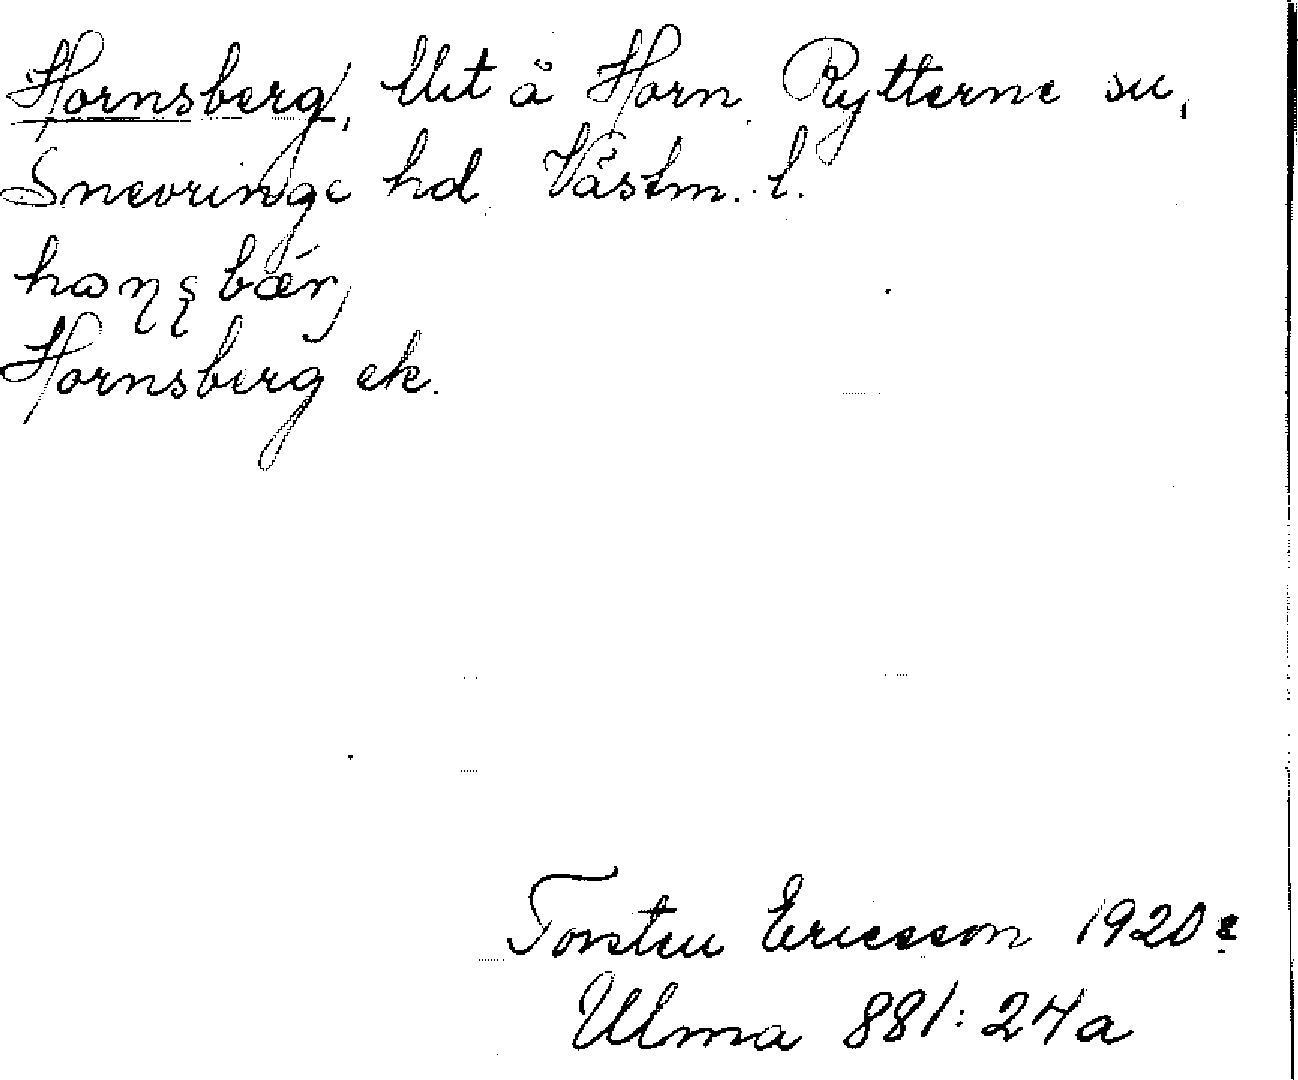 Hornsberg, Utä Horn Rytterne sn,
Snevringe hd Västm. l.
Hornsberg ek.
Torsten Ericsson 1920
Ulma 881:24a